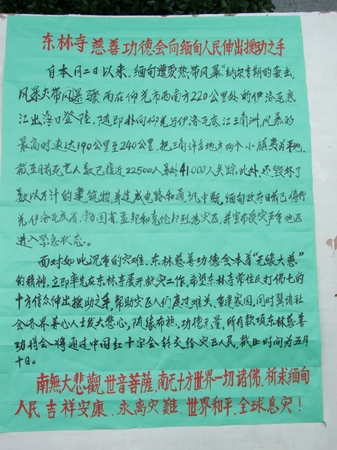 东林寺慈善功德会向缅甸人民伸出援助之手
自本月二日以来，缅甸遭受热带风暴"纳尔吉斯的袭击，
风暴大带风暴骤雨在仰光市西南方220公里处的伊洛瓦底
江出海口登陆，随即扑向仰光与伊洛瓦底江三角洲，风暴的
最高时速达190公里至240公里，把三角洲许多地方两个小
截至目前死亡人数已接近22500人，另外41000人失踪，此外，还毁坏了
数以万计的建筑物，并造成电路和通讯中断，缅甸政府日前已将仰
光、伊洛瓦底省、勃固省、孟邦和克伦邦列为灾区，并宣布受灾严重地区
进入紧急状态。
面对如此沉重的灾难，东林慈善功德会本着"无缘大慈"
的精神，立即率先在东林寺展开救灾工作，希望东林寺常住及打佛七的
十方信众伸出援助之手，帮助灾区人们度过难关，重建家园，同时吁请社
会各界善心人士发大悲心，随缘布施，功德无量，所有款项东林慈善
功德会将通过中国红十字会转交给灾区人民，截止时间为五月
十日。
南無大悲觀世音菩薩，南无十方世界一切諸佛，祈求缅甸
人民吉祥安康，永离灾難，世界和平，全球息灾！